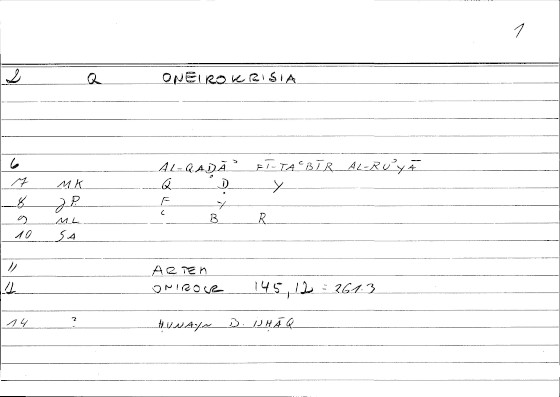 1
2 Q ONEIROKRISIA
6 AL-QAḌĀʾ FĪ-TAʿBĪR AL-RUʾYĀ
7 MK Q Ḍ Y
8 JP F Y
9 ML ʿ B R
10 SA
11 ARTEM
12 ONIROCR 145,12 = 2613
14 ? ḤUNAYN B. ISḤĀQ